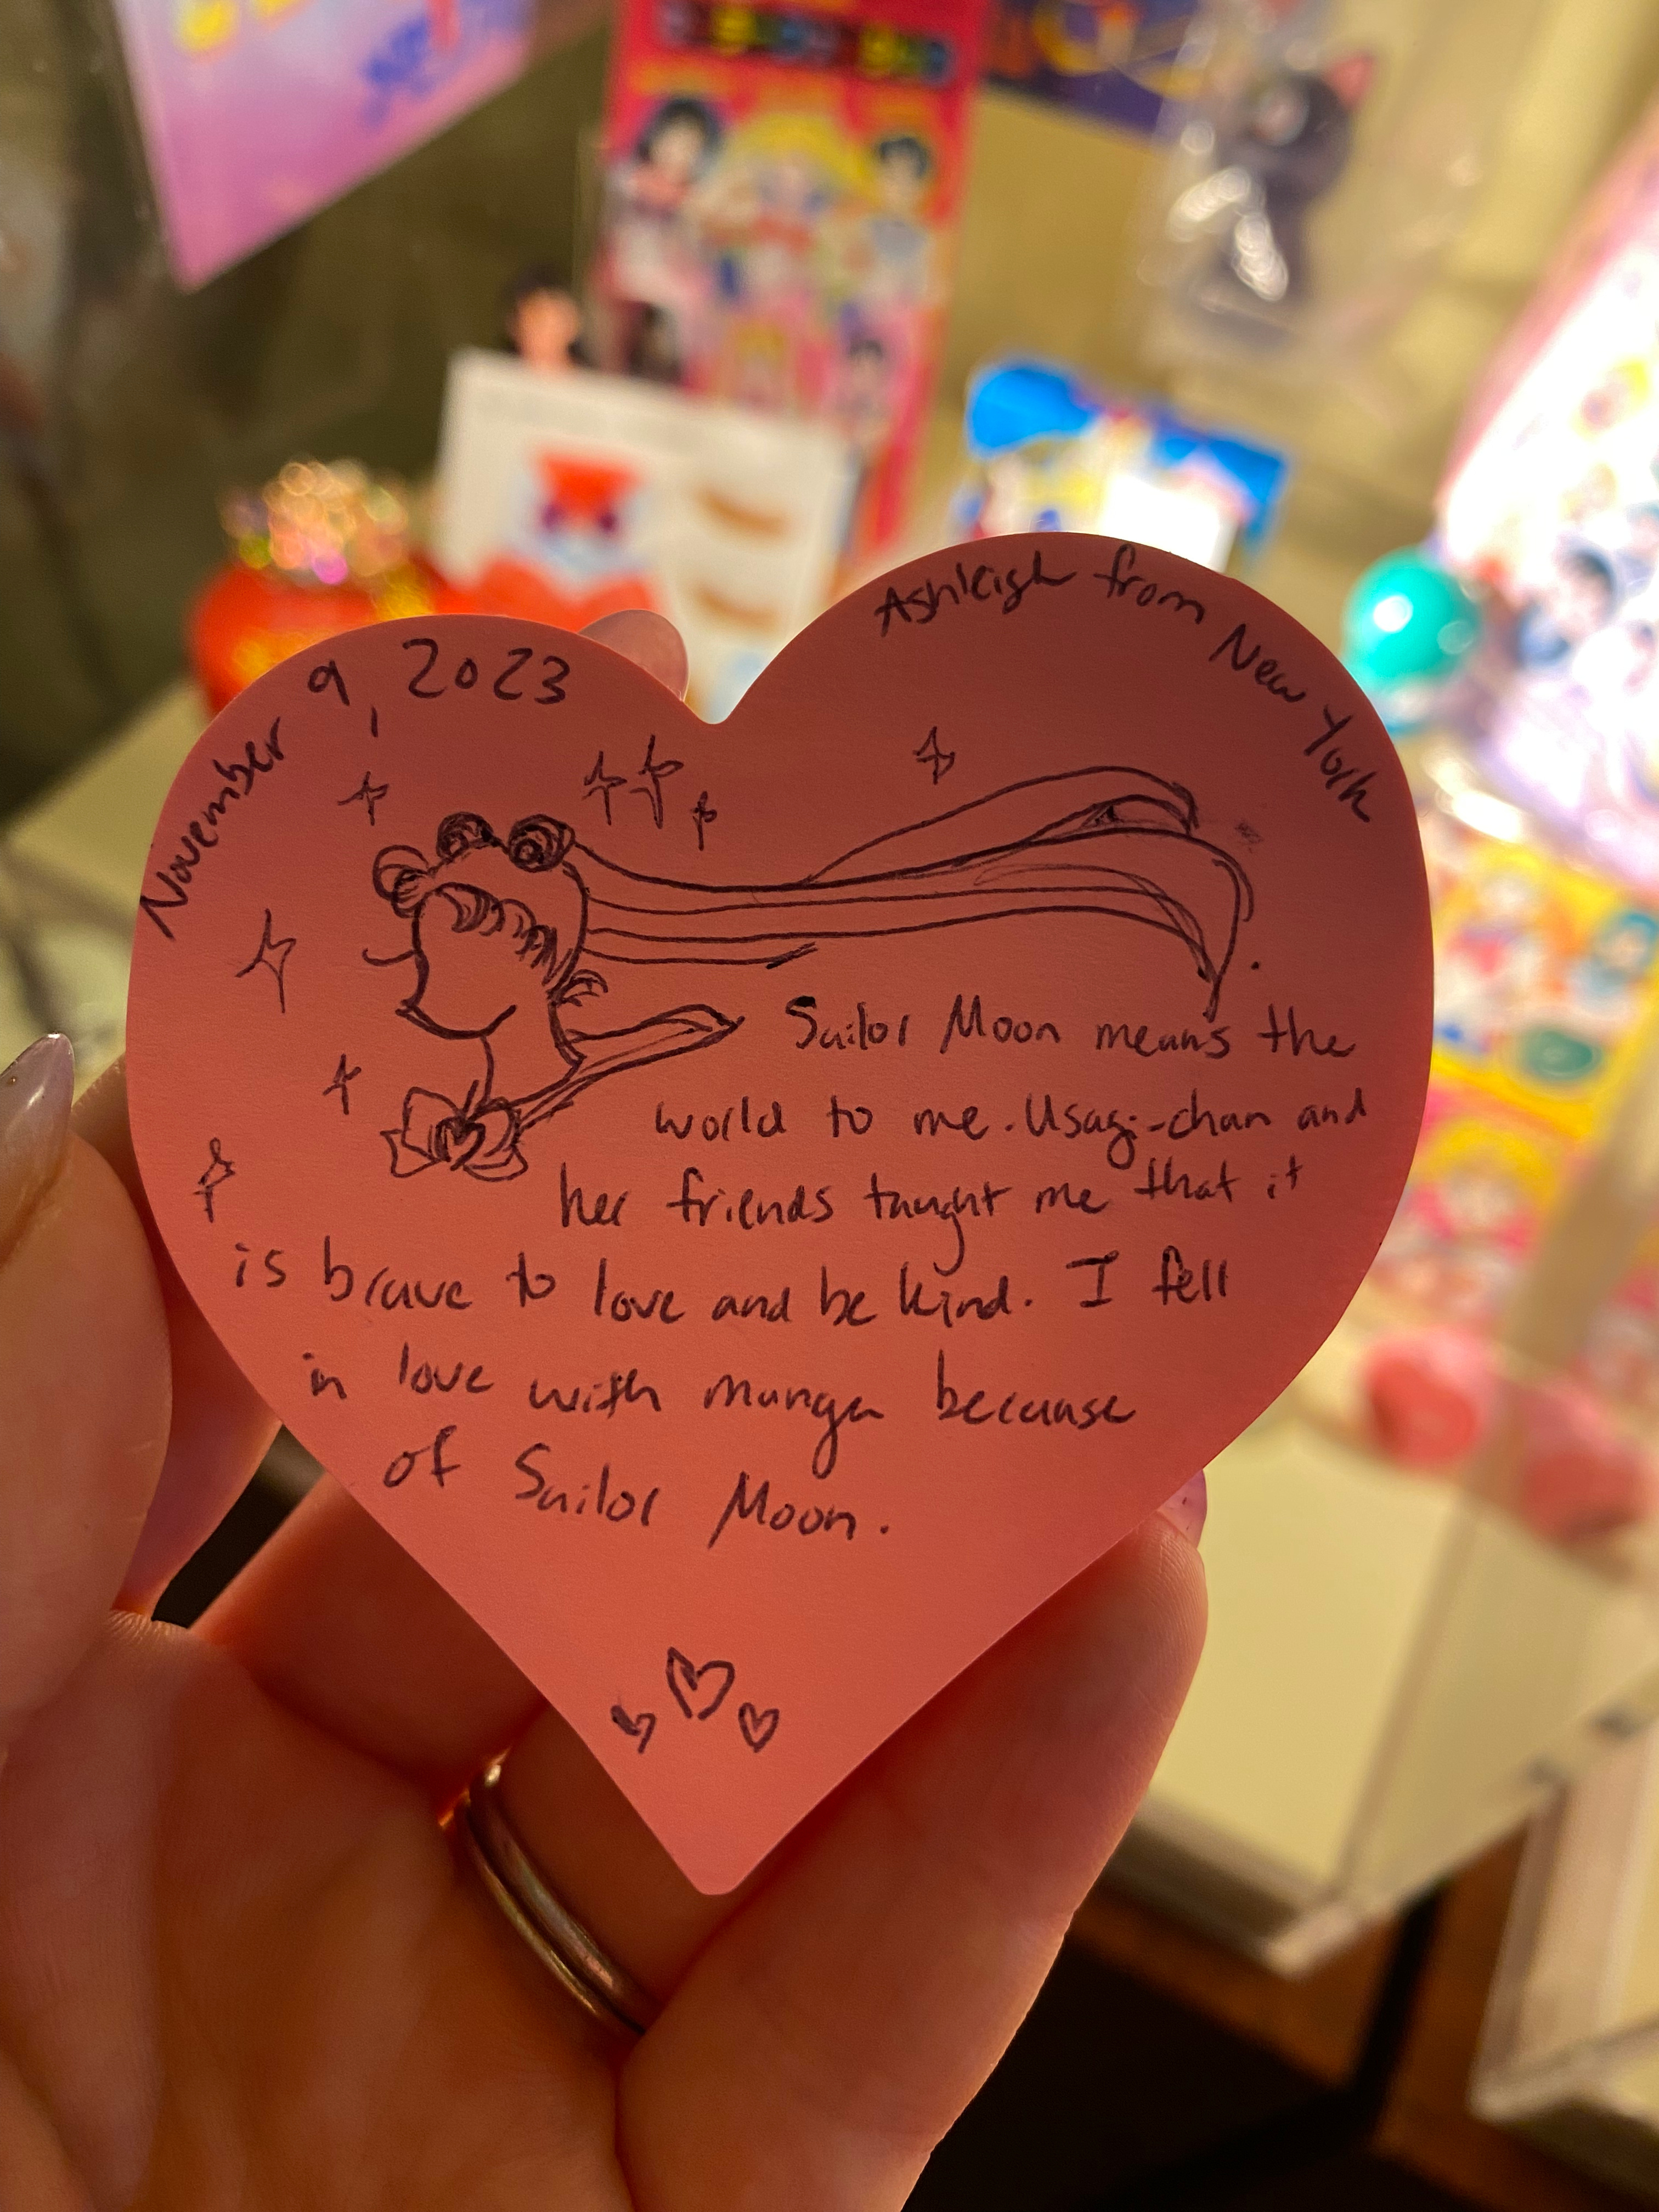 November 9, 2023
Ashleigh from New York
Sailor Moon means the
world to me. Usagi-chan and
her friends taught me that it
is brave to love and be kind. I fell
in love with manga because
of Sailor Moon.